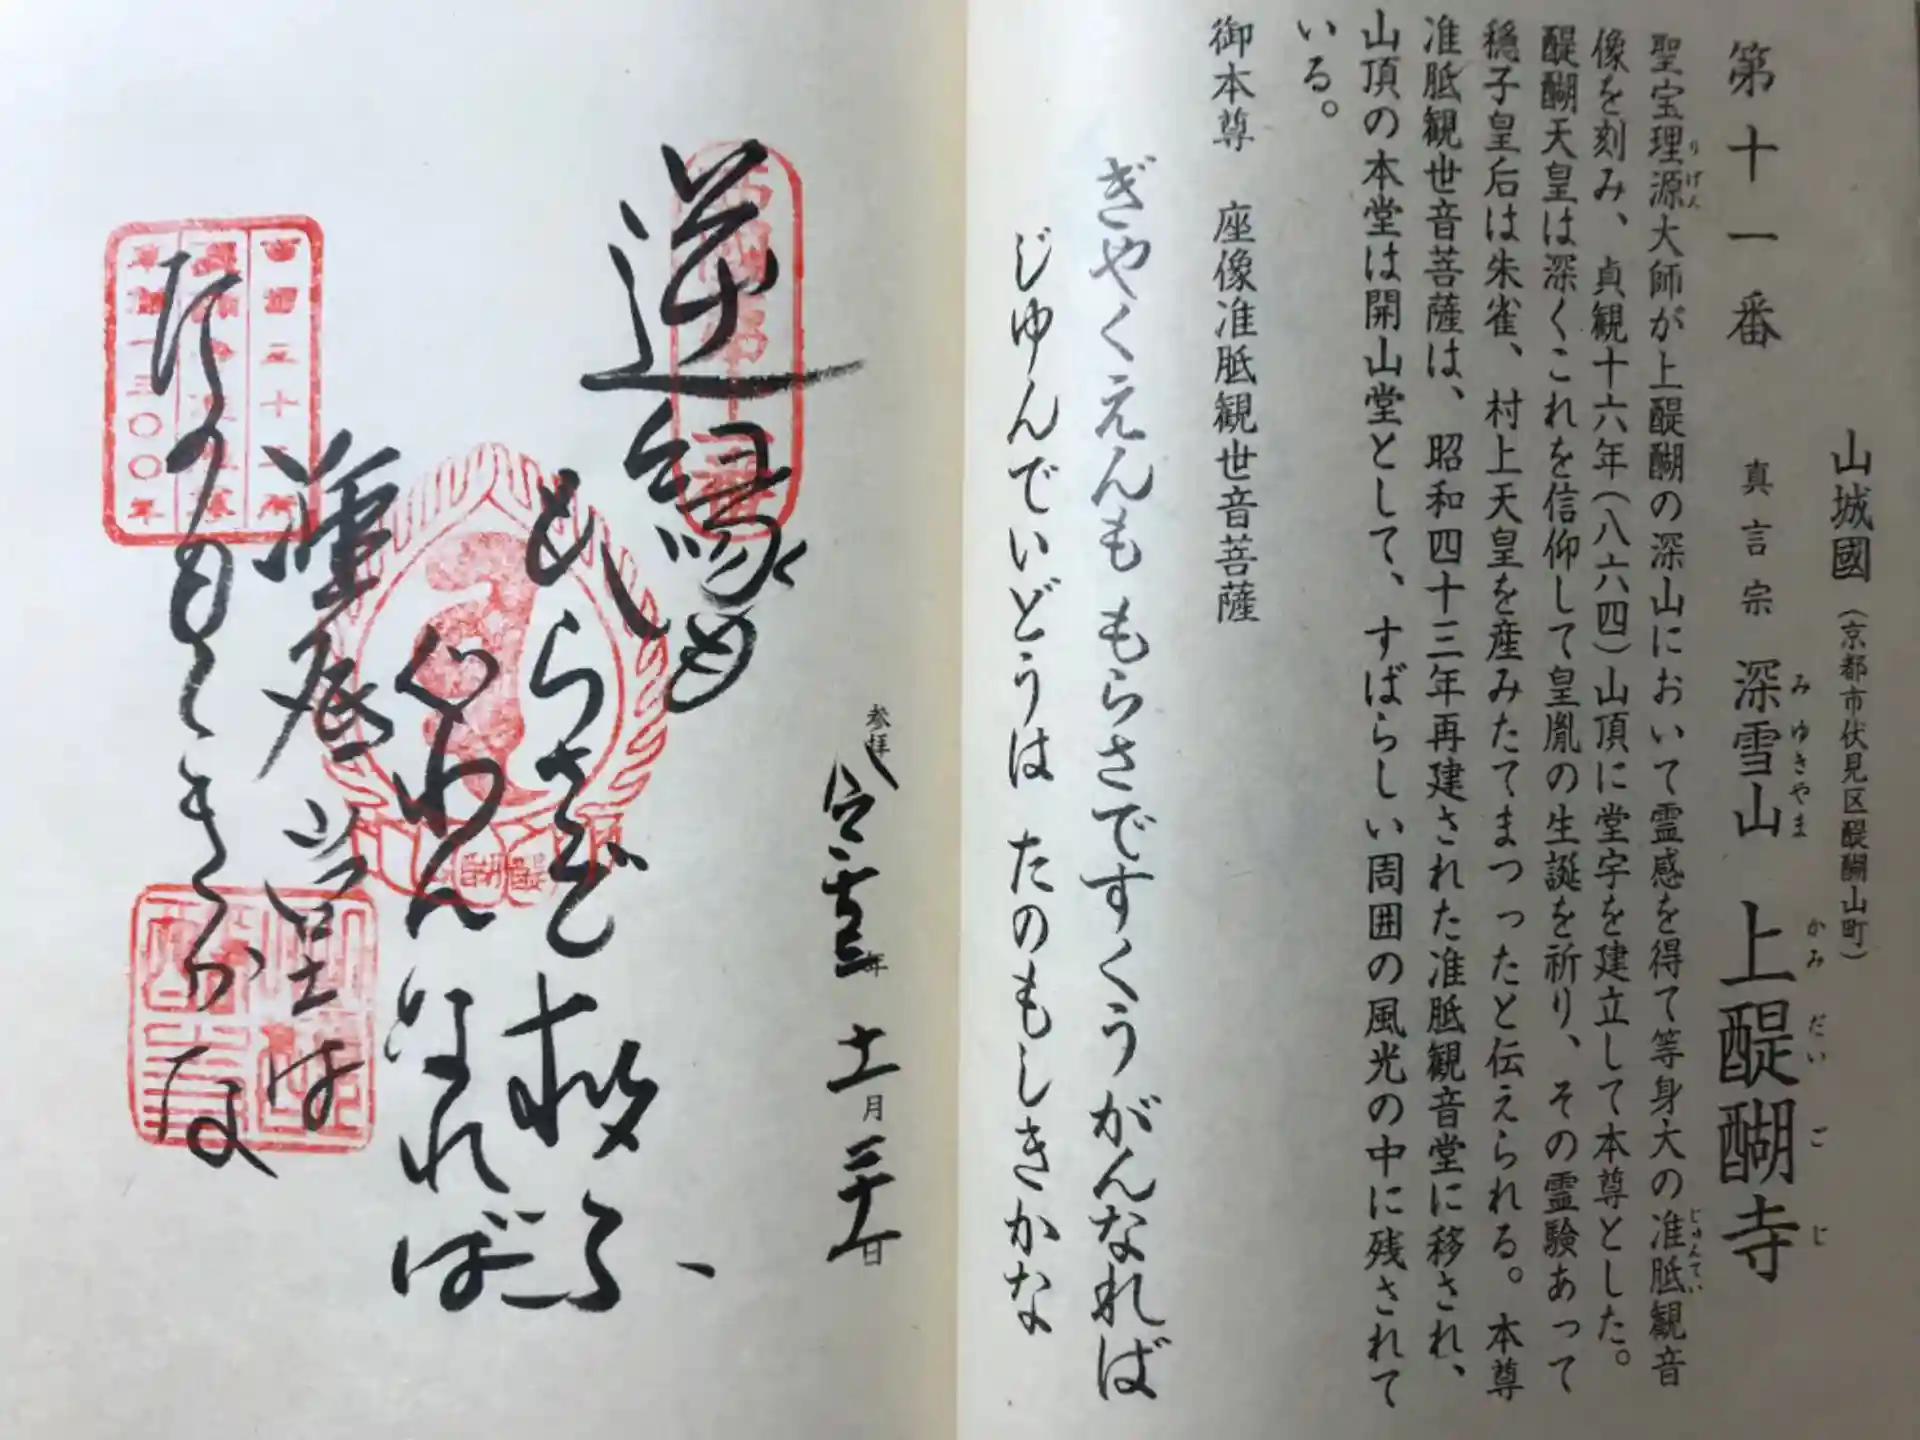 山城國（京都市伏見区醍醐山町）
第十一番 真言宗 深雪山 上醍醐寺
みゆきやま かみだいごじ
聖宝理源大師が上醍醐の深山において霊感を得て等身大の准胝観音
りげん じゅんてい
像を刻み、貞観十六年（八六四）山頂に堂宇を建立して本尊とした。
醍醐天皇は深くこれを信仰して皇胤の生誕を祈り、その霊験あって
穏子皇后は朱雀、村上天皇を産みたてまつったと伝えられる。本尊
准胝観世音菩薩は、昭和四十三年再建された准胝観音堂に移され、
山頂の本堂は開山堂として、すばらしい周囲の風光の中に残されて
いる。
御本尊 座像准胝観世音菩薩
ぎやくえんも もらさですくうがんなれば
じゆんでいどうは たのもしきかな
参拝 令和 弐年 十一月 三十日
逆縁も
もらさで救ふ
ぐわんなれば
准胝堂は
たのもしきかな
西国三十三所
草創一三〇〇年
醍醐